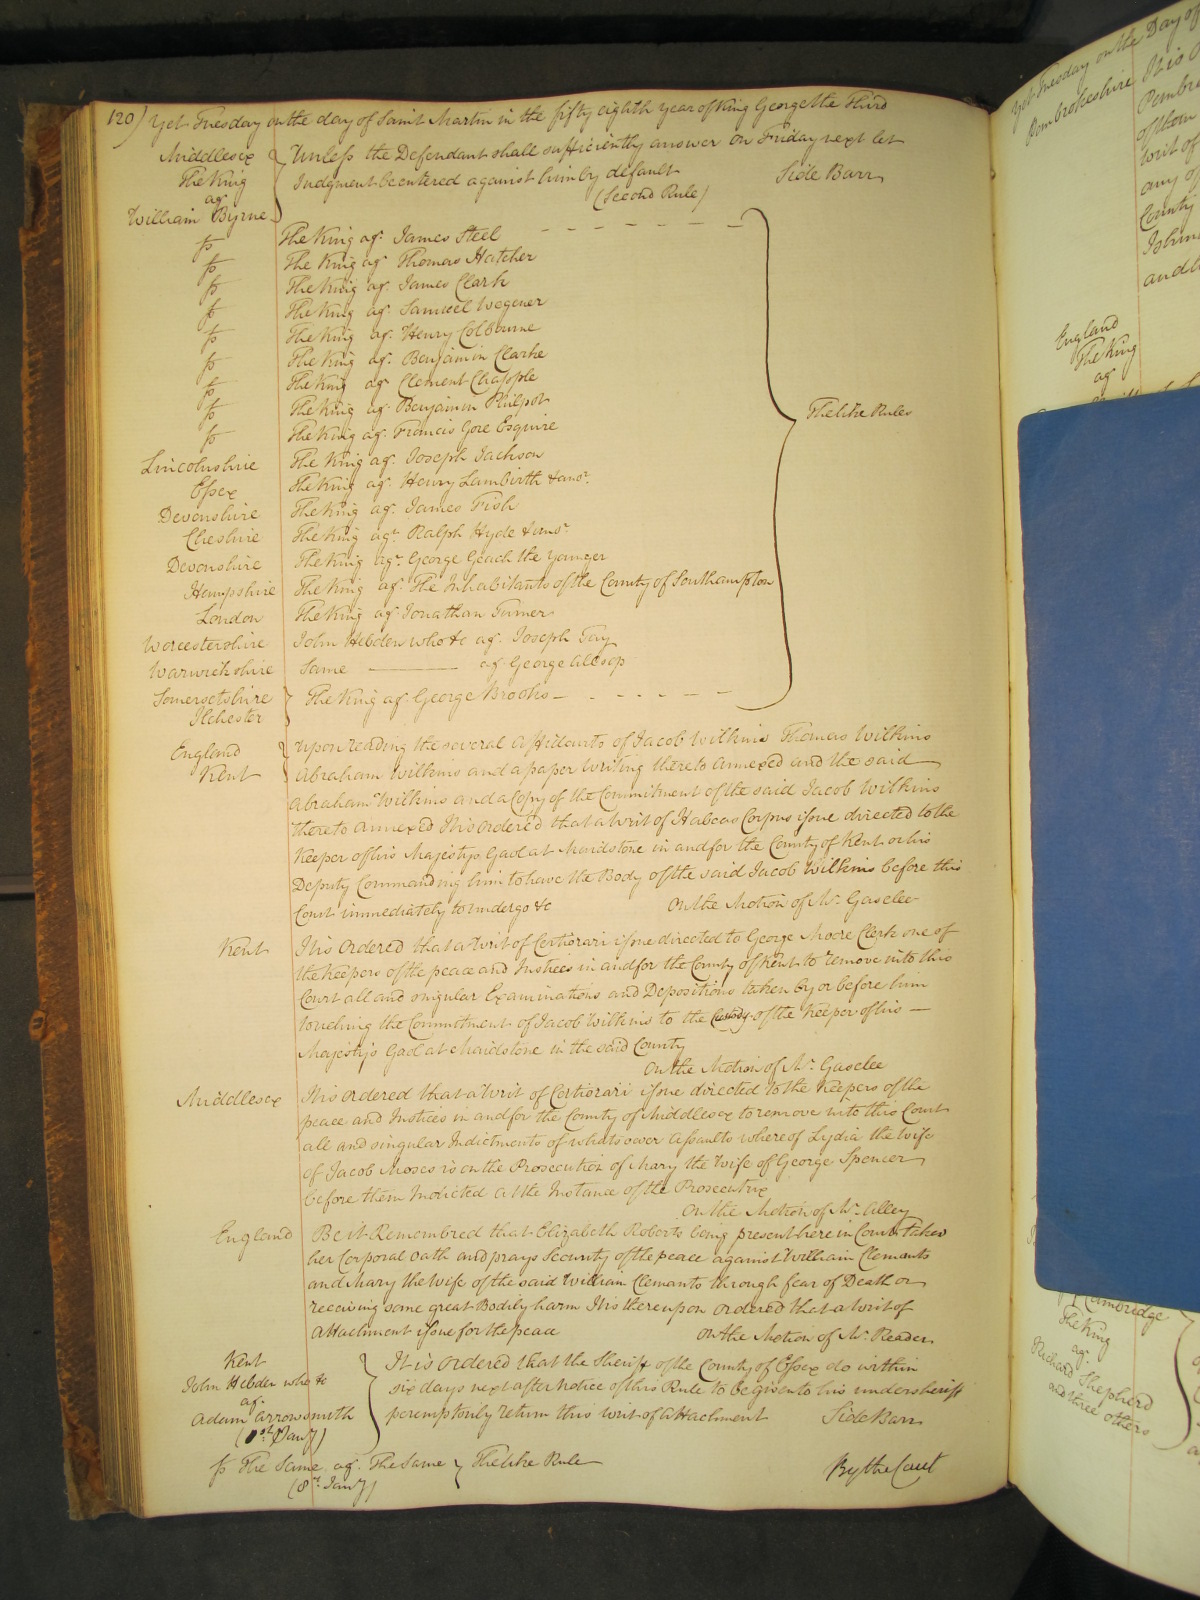 120) Yet Tuesday on the day of Saint Martin in the fifty eighth year of King George the Third
Middlesex
The King
agt.
William Byrne
Unless the Defendant shall sufficiently answer on Friday next let
Judgment be entered against him by default
Side Barr
(Second Rule)
fo The King agt. James Steel
fo The King agt. Thomas Hatcher
fo The King agt. James Clark
fo The King agt. Samuel Wegener
fo The King agt. Henry Colbourne
fo The King agt. Benjamin Clarke
fo The King agt. Clement Chapple
fo The King agt. Benjamin Philpot
fo The King agt. Francis Gore Esquire
The like Rules
Lincolnshire The King agt. Joseph Jackson
Essex The King agt. Henry Lambirth & anor.
Devonshire The King agt. James Fish
Cheshire The King agt. Ralph Hyde & anor
Devonshire The King agt. George Geach the younger
Hampshire The King agt. The Inhabitants of the County of Southampton
London The King agt Jonathan Turner
Worcestershire John Hebden who &c agt. Joseph Tay
Warwickshire Same agt George Allsop
Somersetshire
Ilchester
The King agt. George Brooks
England
Kent
Upon reading the several Affidavits of Jacob Wilkins Thomas Wilkins
Abraham Wilkins and a paper Writing thereto Annexed and the said
Abraham Wilkins and a Copy of the Commitment of the said Jacob Wilkins
thereto annexed It is ordered that a Writ of Habeas Corpus issue directed to the
Keeper of his Majestys Gaol at Maidstone in and for the County of Kent or his
Deputy Commanding him to have the Body of the said Jacob Wilkins before this
Court immediately to undergo &c On the Motion of Mr. Gaselee
Kent It is ordered that a Writ of Certiorari issue directed to George Moore Clerk one of
the Keepers of the peace and Justices in and for the County of Kent to remove into this
Court all and singular Examinations and Depositions taken by or before him
touching the Commitment of Jacob Wilkins to the Custody of the Keeper of his
Majesty's Gaol at Maidstone in the said County
On the Motion of Mr. Gaselee
Middlesex It is ordered that a Writ of Certiorari issue directed to the Keepers of the
peace and Justices in and for the County of Middlesex to remove into this Court
all and singular Indictments of whatsoever Assaults whereof Lydia the Wife
of Jacob Moses is on the Prosecution of Mary the Wife of George Spencer
before them Indicted at the Instance of the Prosecutrix
On the Motion of Mr. Alley
England Be it Remembred that Elizabeth Roberts being present here in Court takes
her Corporal Oath and prays Security of the peace against William Clements
and Mary the Wife of the said William Clements through fear of Death or
receiving some great Bodily harm It is thereupon ordered that a Writ of
Attachment issue for the peace On the Motion of Mr. Reader
Kent
John Hebden who &c
agt.
Adam Arrowsmith
It is ordered that the Sheriff of the County of Essex do within
six days next after notice of this Rule to be given to his undersheriff
peremptorily return this Writ of Attachment Side Barr
fo The Same agt. The Same The like Rule
(8th. Jany)
By the Court
Yet Tuesday on the Day of
Pembrokeshire
It is
Pembro
of them
Writ of
any of
County
England
The King
agt
Cambridge
The King
agt.
Richard Shepherd
and three others